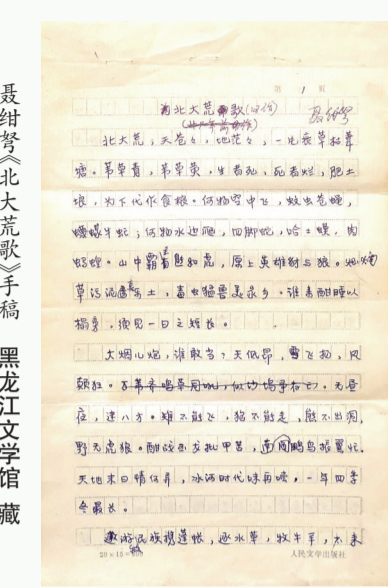 聂绀弩《北大荒歌》手稿 黑龙江文学馆 藏
第 1 页
北大荒歌(旧作)
聂绀弩
北大荒,天苍々,地茫々,一片衰草枯苇
塘。苇草青,苇草黄,生者死,死者烂,肥土
壤,为下代作食粮。何物空中飞,蚊虫苍蝇,
蠛蠓牛虻;何物水边爬,四脚蛇,哈士蟆,肉
蚂蝗。山中霸者熊和虎,原上英雄豺与狼。烂
草污泥真乐土,毒虫猛兽美家乡。谁来酣睡似
榻旁,须见一日之短长。
大烟儿炮,谁敢当?天低昂,雪飞扬,风
颠狂。无昼
夜,迷八方。雉不能飞,狍不能走,熊不出洞,
野无虎狼。酣战玉龙披甲苦,图南鹏鸟振翼忙。
天地末日情何异,冰河时代味再尝,一年四季
冬最长。
遨游牧族携蓬帐,逐水草,牧牛羊,太来
20×15=300
人民文学出版社